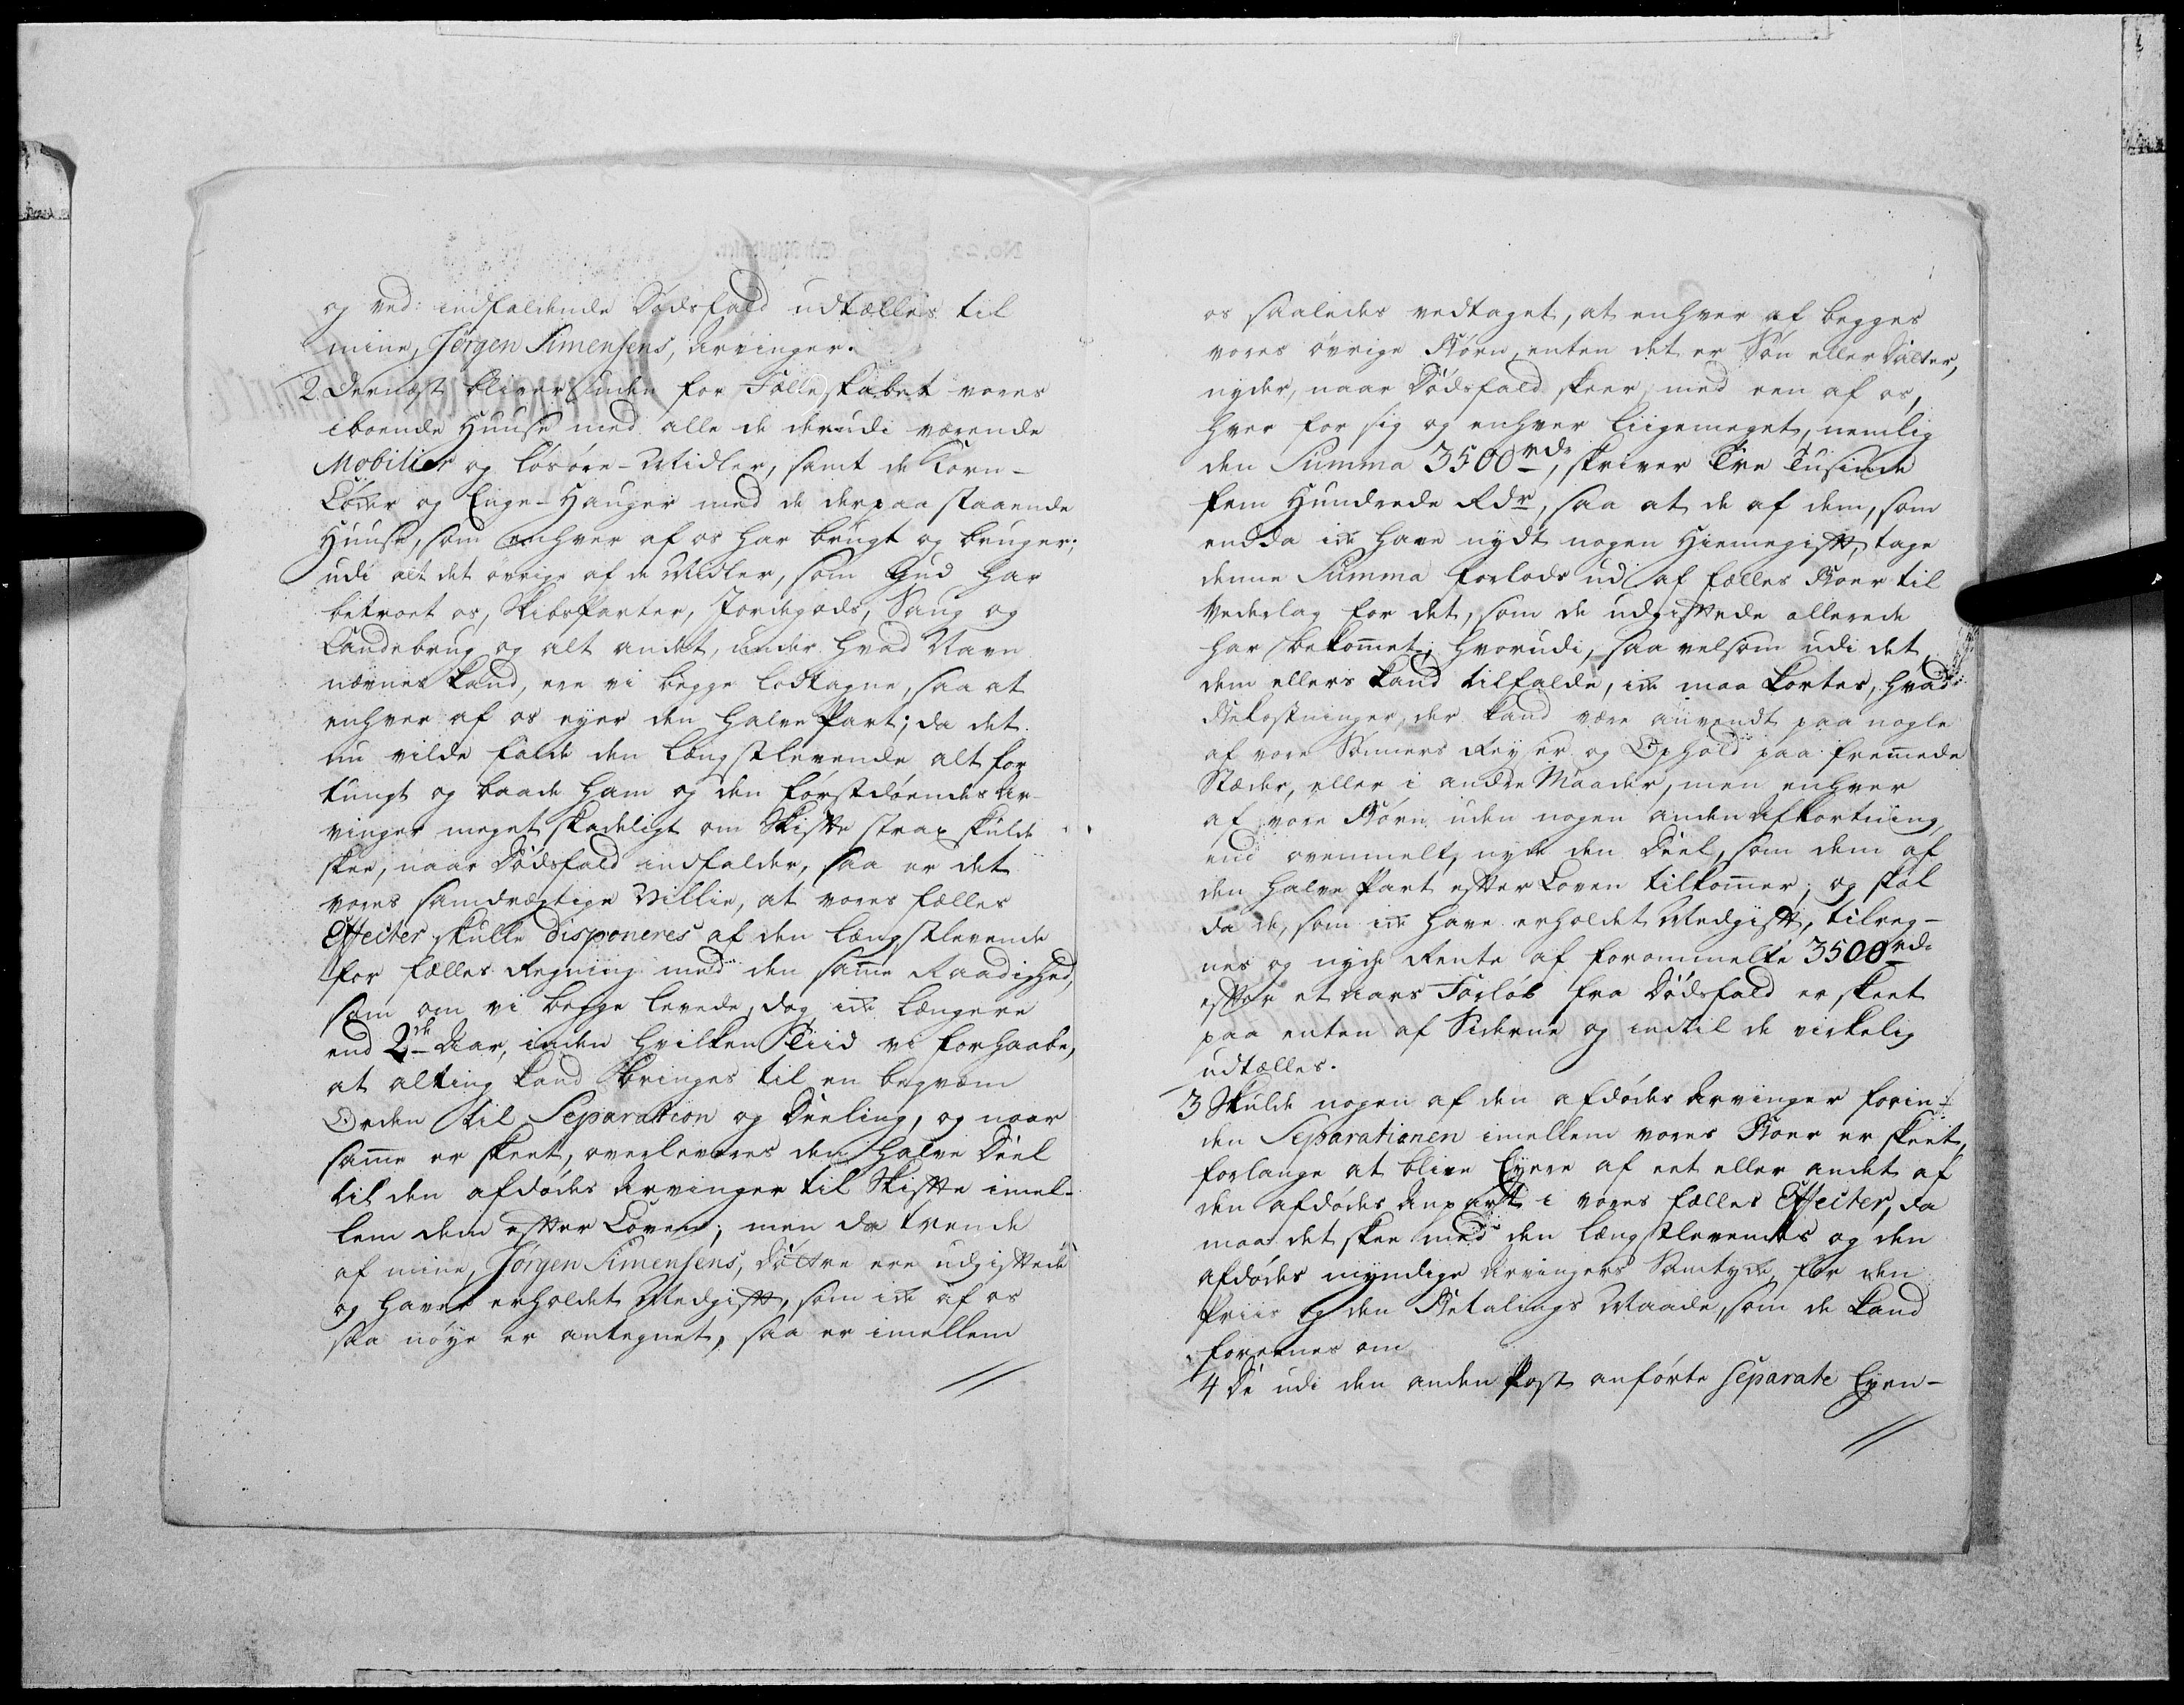 og ved indfaldende Dødsfald udtælles til
mine, Jørgen Simensens, Arvinger.
2 Dernæst bliver uden for Fælleskabet vores
iboende Huuse med alle de derudi værende
Mobilier og Løsøre-Midler, samt de Korn-
Løder og Enge-Hauger med de derpaa staaende
Huuse, som enhver af os har brugt og bruger;
udi alt det øvrige af de Midler, som Gud har
betroet os, Skibsparter, Jordegods, Saug og
Landebrug og alt andet, under hvad Navn
nævnes kand, ere vi begge lodtagne, saa at
enhver af os eyer den halve Part; da det
nu vilde falde den længstlevende alt for
tungt og baade ham og den førstdøendes Ar-
vinger meget skadeligt om Skifte strax skulde
skee, naar Dødsfald indfalder, saa er det
vores samdrægtige Villie, at vores fælles
Effecter skulle disponeres af den længstlevende
for fælles Regning med den samme Raadighed,
som om vi begge levede, dog icke længere
end 2de Aar, inden hvilken Tiid vi forhaabe,
at alting kand bringes til en beqvem
Orden til Separation og Deeling, og naar
samme er skeet, overleveres den halve Deel
til den afdødes Arvinger til Skifte imel-
lem dem efter Loven; men da tvende
af mine, Jørgen Simensens, Døttre ere udgiftede
og haver erholdet Medgift, som icke af os
saa nøye er antegnet, saa er imellem
os saaledes vedtaget, at enhver af begges
vores øvrige Børn, enten det er Søn eller Datter,
nyder, naar Dødsfald skeer med een af os,
hver for sig og enhver liigemeget, nemlig
den Summa 3500 rdr, skriver Tre Tusinde
fem Hundrede Rdr, saa at de af dem, som
endda icke have nydt nogen Hiemegift, tage
denne Summa forlods ud af fælles Boer til
Vederlag for det, som de udgiftede allerede
har bekommet; hvorudi, saavelsom udi det
dem ellers kand tilfalde, icke maa kortes, hvad
Bekostninger, der kand være anvendt paa nogle
af vore Sønners Reyser og Ophold paa fremmede
Stæder, eller i andre Maader, men enhver
af vore Børn uden nogen anden Afkortning,
end ovenmelt, nyde den Deel, som dem af
den halve Part efter Loven tilkommer; og skal
da de, som icke have erholdet Medgift, tilreg-
nes og nyde Rente af forommelte 3500 rd.
efter et Aars Forløb fra Dødsfald er skeet
paa enten af Siderne og indtil de virkelig
udtælles.
3 Skulde nogen af den afdødes Arvinger forin-
den Separationen imellem vores Boer er skeet,
forlange at blive Eyere af eet eller andet af
den afdødes Anpart i vores fælles Effecter, da
maa det skee med den længstlevendes og den
afdødes myndige Arvingers Samtycke, for den
Priis og den Betalings Maade, som de kand
foreenes om
4 De udi den anden Post anførte separate Eyen-